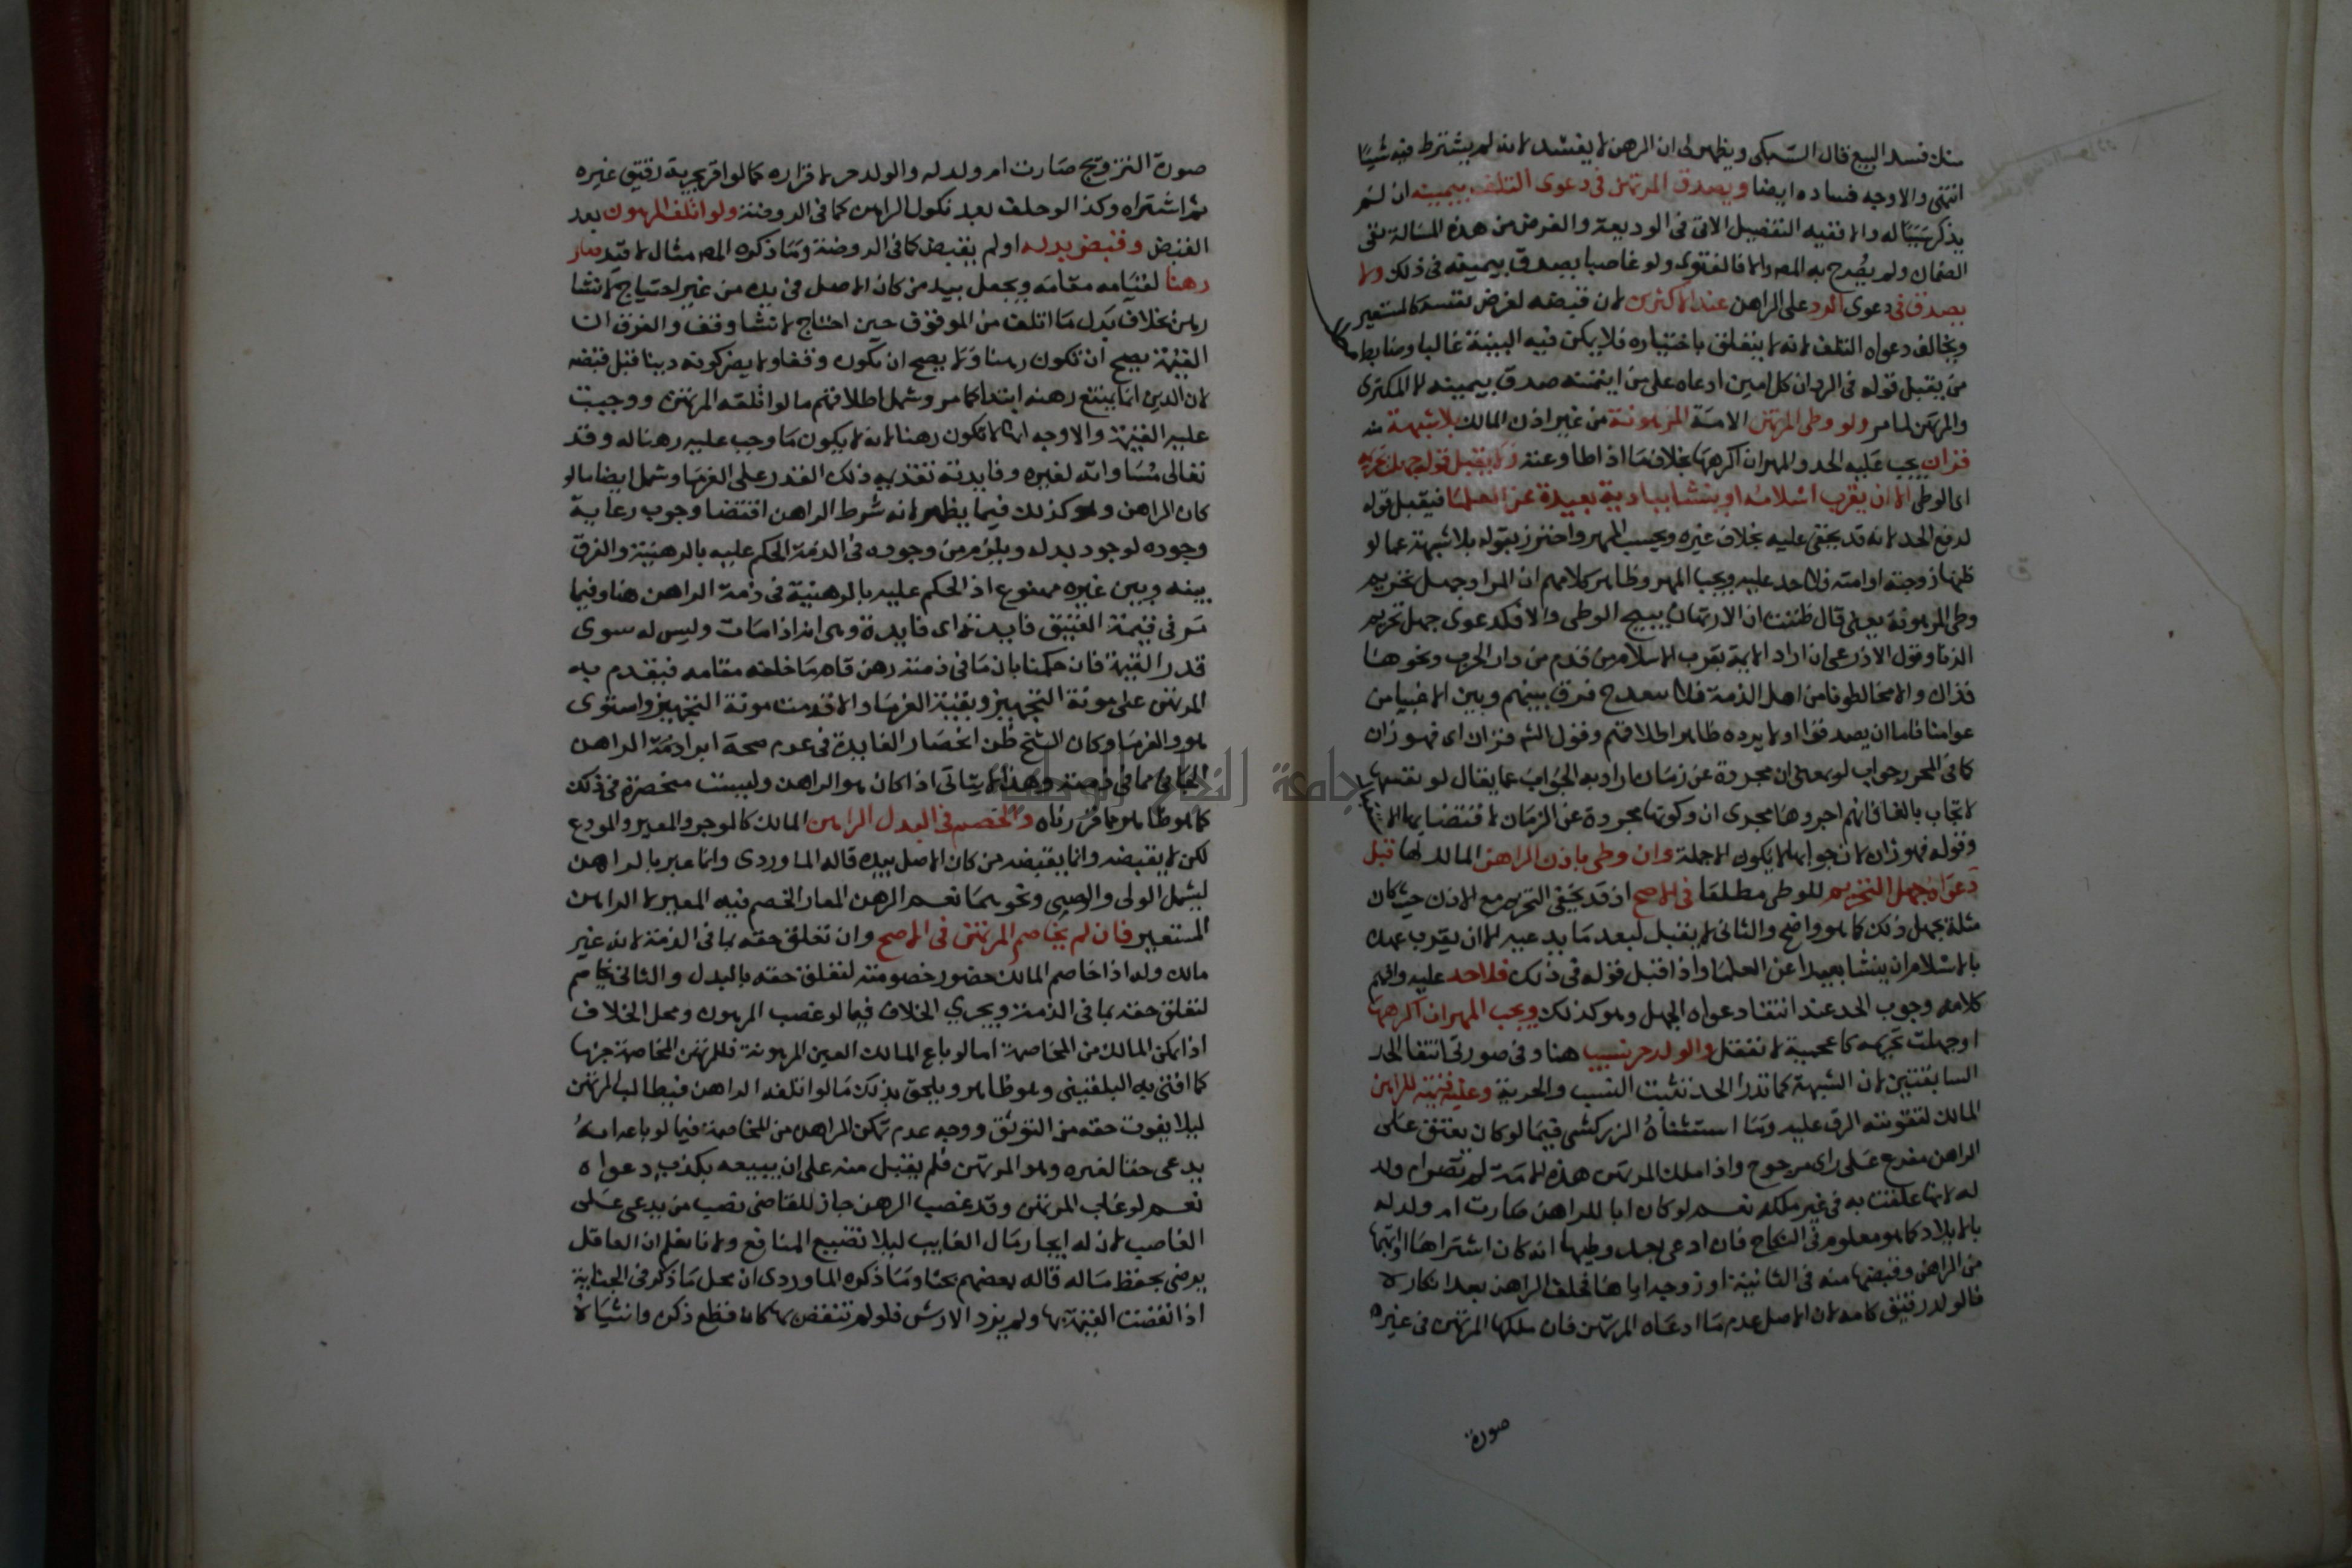 منك فسد البيع قال السبكى ويظهر لى ان الرهن لا يفسد لانه لم يشترط فيه شيئا
انتهى والاوجه فساده ايضا ويصدق المرتهن فى دعوى التلف بيمينه ان لم
يذكر سببا له والا ففيه التفصيل الاتى فى الوديعة والغرض من هذه المسالة نفى
الضمان ولم يصرح به المص والا فالغوى ولو غاصبا يصدق بيمينه فى ذلك ولا
يصدق فى دعوى الرد على الراهن عند الاكثرين لان قبضه لغرض نفسه كالمستعير
ويخالف دعواه التلف لانه لا يتعلق باختياره فلا يمكن فيه البينة غالبا وضابط
من يقبل قوله فى الرد ان كل امين ادعاه على من ايتمنه صدق بيمينه الا المكترى
والمرتهن لما مر ولو وطى المرتهن الامة المرهونة من غير اذن المالك بلا شبهة منه
فزان يجب عليه الحد والمهر ان اكرهها بخلاف ما اذا طاوعته ولا يقبل قوله جهلت تحريمه
اى الوطى الا ان يقرب اسلامه او ينشا ببادية بعيدة عن العلما فيقبل قوله
لدفع الحد لانه قد يخفى عليه بخلاف غيره ويجب المهر واحترز بقوله بلا شبهة عما لو
ظنها زوجته او امته فلا حد عليه ويجب المهر وظاهر كلامهم ان المراد جهل تحريم
وطى المرهونة بمعنى قال ظننت ان الارتهان يبيح الوطى والا فكدعوى جهل تحريم
الزنا وقول الاذرعى ان اراد الايمة بقرب الاسلام من قدم من دار الحرب ونحوها
فذاك والا مخالطونا من اهل الذمة فلا ينقدح فرق بينهم وبين الاغبيا من
عوامنا فاما ان يصدقوا اولا يرده ظاهر اطلاقهم وقول الشم فزان اى فهو زان
كما فى المحرر جواب لو بمعنى ان مجردة عن زمان اراد به الجواب عما يقال لو نفسها
لا تجاب بالفا فانهم اجروها مجرى ان وكونها مجردة عن الزمان لاقتضايها
وقوله فهو زان لان جوابها لا يكون الا جملة وان وطى باذن الراهن المالك لها قبل
دعواه جهل التحريم للوطى مطلقا فى الاصح اذ قد يخفى التحريم مع الاذن حيث كان
مثله يجهل ذلك كما هو واضح والثانى لا يقبل لبعد ما يدعيه الا ان يقرب عهده
بالاسلام او ينشا بعيدا عن العلما واذا قبل قوله فى ذلك فلا حد عليه وافهم
كلامه وجوب الحد عند انتفا دعواه الجهل وهو كذلك ويجب المهر ان اكرهها
او جهلت تحريمه كاعجمية لا تعقل والولد حر نسيب هنا وفى صورتى انتفا الحد
السابقتين لان الشبهة كما تدرا الحد تثبت النسب والحرية وعليه قيمته للراهن
المالك لتفويته الرق عليه وما استثناه الزركشى فيما لو كان يعتق على
الراهن مفرع على راى مرجوح واذا ملك المرتهن هذه الامة لم تصر ام ولد
له لانها علقت به فى غير ملكه نعم لو كان ابا للراهن صارت ام ولد له
بالايلاد كما هو معلوم فى النكاح فان ادعى بعد وطيها انه كان اشتراها او اتهبها
من الراهن وقبضها منه فى الثانية او زوجه اياها فحلف الراهن بعد انكاره
فالولد رقيق كامه لان الاصل عدم ما ادعاه المرتهن فان ملكها المرتهن فى غير
صورة
صورة التزويج صارت ام ولد له والولد حر لاقراره كما لو اقر بحرية رقيق غيره
ثم اشتراه وكذا لو حلف بعد نكول الراهن كما فى الروضة ولو اتلف المرهون بعد
القبض وقبض بدله او لم يقبض كما فى الروضة وما ذكره المص مثال لا قيد صار
رهنا لقيامه مقامه ويجعل بيد من كان الاصل فى يده من غير احتياج لانشا
رهن بخلاف بدل ما اتلف من الموقوف حين احتاج لانشا وقف والفرق ان
القيمة يصح ان تكون رهنا ولا يصح ان تكون وقفا ولا يضر كونه دينا قبل قبضه
لان الدين انما يمتنع رهنه ابتدا كما مر وشمل اطلاقهم ما لو اتلفه المرتهن ووجبت
عليه القيمة والاوجه انها لا تكون رهنا لانه لا يكون ما وجب عليه رهنا له وقد
تعالى مساواته لغيره وفايدته تقديمه بذلك القدر على الغرما وشمل ايضا ما لو
كان الراهن وهو كذلك فيما يظهر لانه شرط الراهن اقتضا وجوب رعاية
وجوده لوجود بدله ويلزم من وجوبه فى الذمة الحكم عليه بالرهنية والفرق
بينه وبين غيره ممنوع اذ الحكم عليه بالرهنية فى ذمة الراهن هنا وفيما
مر فى قيمة العتيق فايدته اى فايدة وهى انه اذا مات وليس له سوى
قدر القيمة فان حكمنا بان ما فى ذمته رهن قام ما خلفه مقامه فيقدم به
المرتهن على مونة التجهيز وبقية الغرما والا قدمت مونة التجهيز واستوى
هو والغرما وكان الشيخ ظن انحصار الفايدة فى عدم صحة ابرا ذمة الراهن
الجانى مما فى ذمته وهذا لا يتاتى اذا كان هو الراهن وليست منحصرة فى ذلك
كما هو ظاهر مما قررناه والخصم فى البدل الراهن المالك كالموجر والمعير والمودع
لكن لا يقبضه وانما يقبضه من كان الاصل بيده قاله الماوردى وانما عبر بالراهن
ليشمل الولى والوصى ونحوهما نعم الرهن المعار الخصم فيه المعير لا الراهن
المستعير فان لم يخاصم المرتهن فى الاصح وان تعلق حقه بما فى الذمة لانه غير
مالك وله اذا خاصم المالك حضور خصومته لتعلق حقه بالبدل والثانى يخاصم
لتعلق حقه بما فى الذمة ويجرى الخلاف فيما لو غصب المرهون ومحل الخلاف
اذا تمكن المالك من المخاصمة اما لو باع المالك العين المرهونة فللمرتهن المخاصمة جزما
كما افتى به البلقينى وهو ظاهر ويلحق بذلك ما لو اتلفه الراهن فيطالب المرتهن
ليلا يفوت حقه من التوثق ووجه عدم تمكن الراهن من المخاصمة فيما لو باعه انه
يدعى حقا لغيره وهو المرتهن فلم يقبل منه على ان بيبعه يكذب دعواه
نعم لو غاب المرتهن وقد غصب الرهن جاز للقاضى نصب من يدعى على
الغاصب لان له ايجار مال الغايب ليلا تضيع المنافع ولانا نعلم ان العاقل
يرضى بحفظ ماله قاله بعضهم بحثا وما ذكره الماوردى ان محل ما ذكر فى الجناية
اذا نقصت القيمة بها ولم يزد الارش فلو لم تنقص بها كان قطع ذكره وانثياه
جامعة النجاح الوطنية